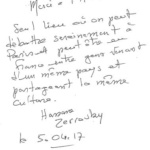 Seul lieu où on peut
débattre sereinement à
Paris et peut être en
France entre gens vivant
d'un même pays et
partageant la même
culture.
Hassane
Zerrouky
le 5.04.17